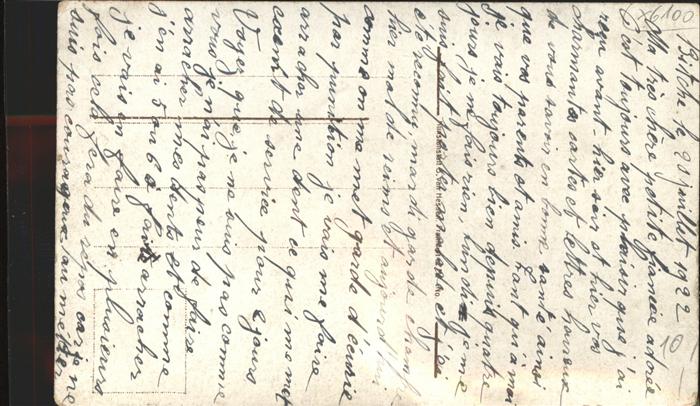 Bitche le 28 juillet 1922
Ma très chère petite fiancée adorée
C'est toujours avec plaisir que j'ai
reçu avant-hier soir et hier vos
charmantes cartes et lettres heureux
de vous savoir en bonne santé ainsi
que vos parents et amis, tant qu'à moi
je vais toujours bien depuis quatre
jours je ne fais rien, lundi je me
suis fait porter malade et j'ai
été reconnu, mardi garde chambre
hier mal de reins et aujourd'hui
comme on me met garde d'écurie
par punition je vais me faire
arracher une dent ce qui me met
exempt de service pour 2 jours
Voyez que je ne suis pas comme
vous j'n'ai pas peur de faire
arracher mes dents et comme
j'en ai 5 ou 6 à faire arracher
je vais en faire en plusieurs
fois cela fera du repos car je ne
suis pas courageux au métier
10